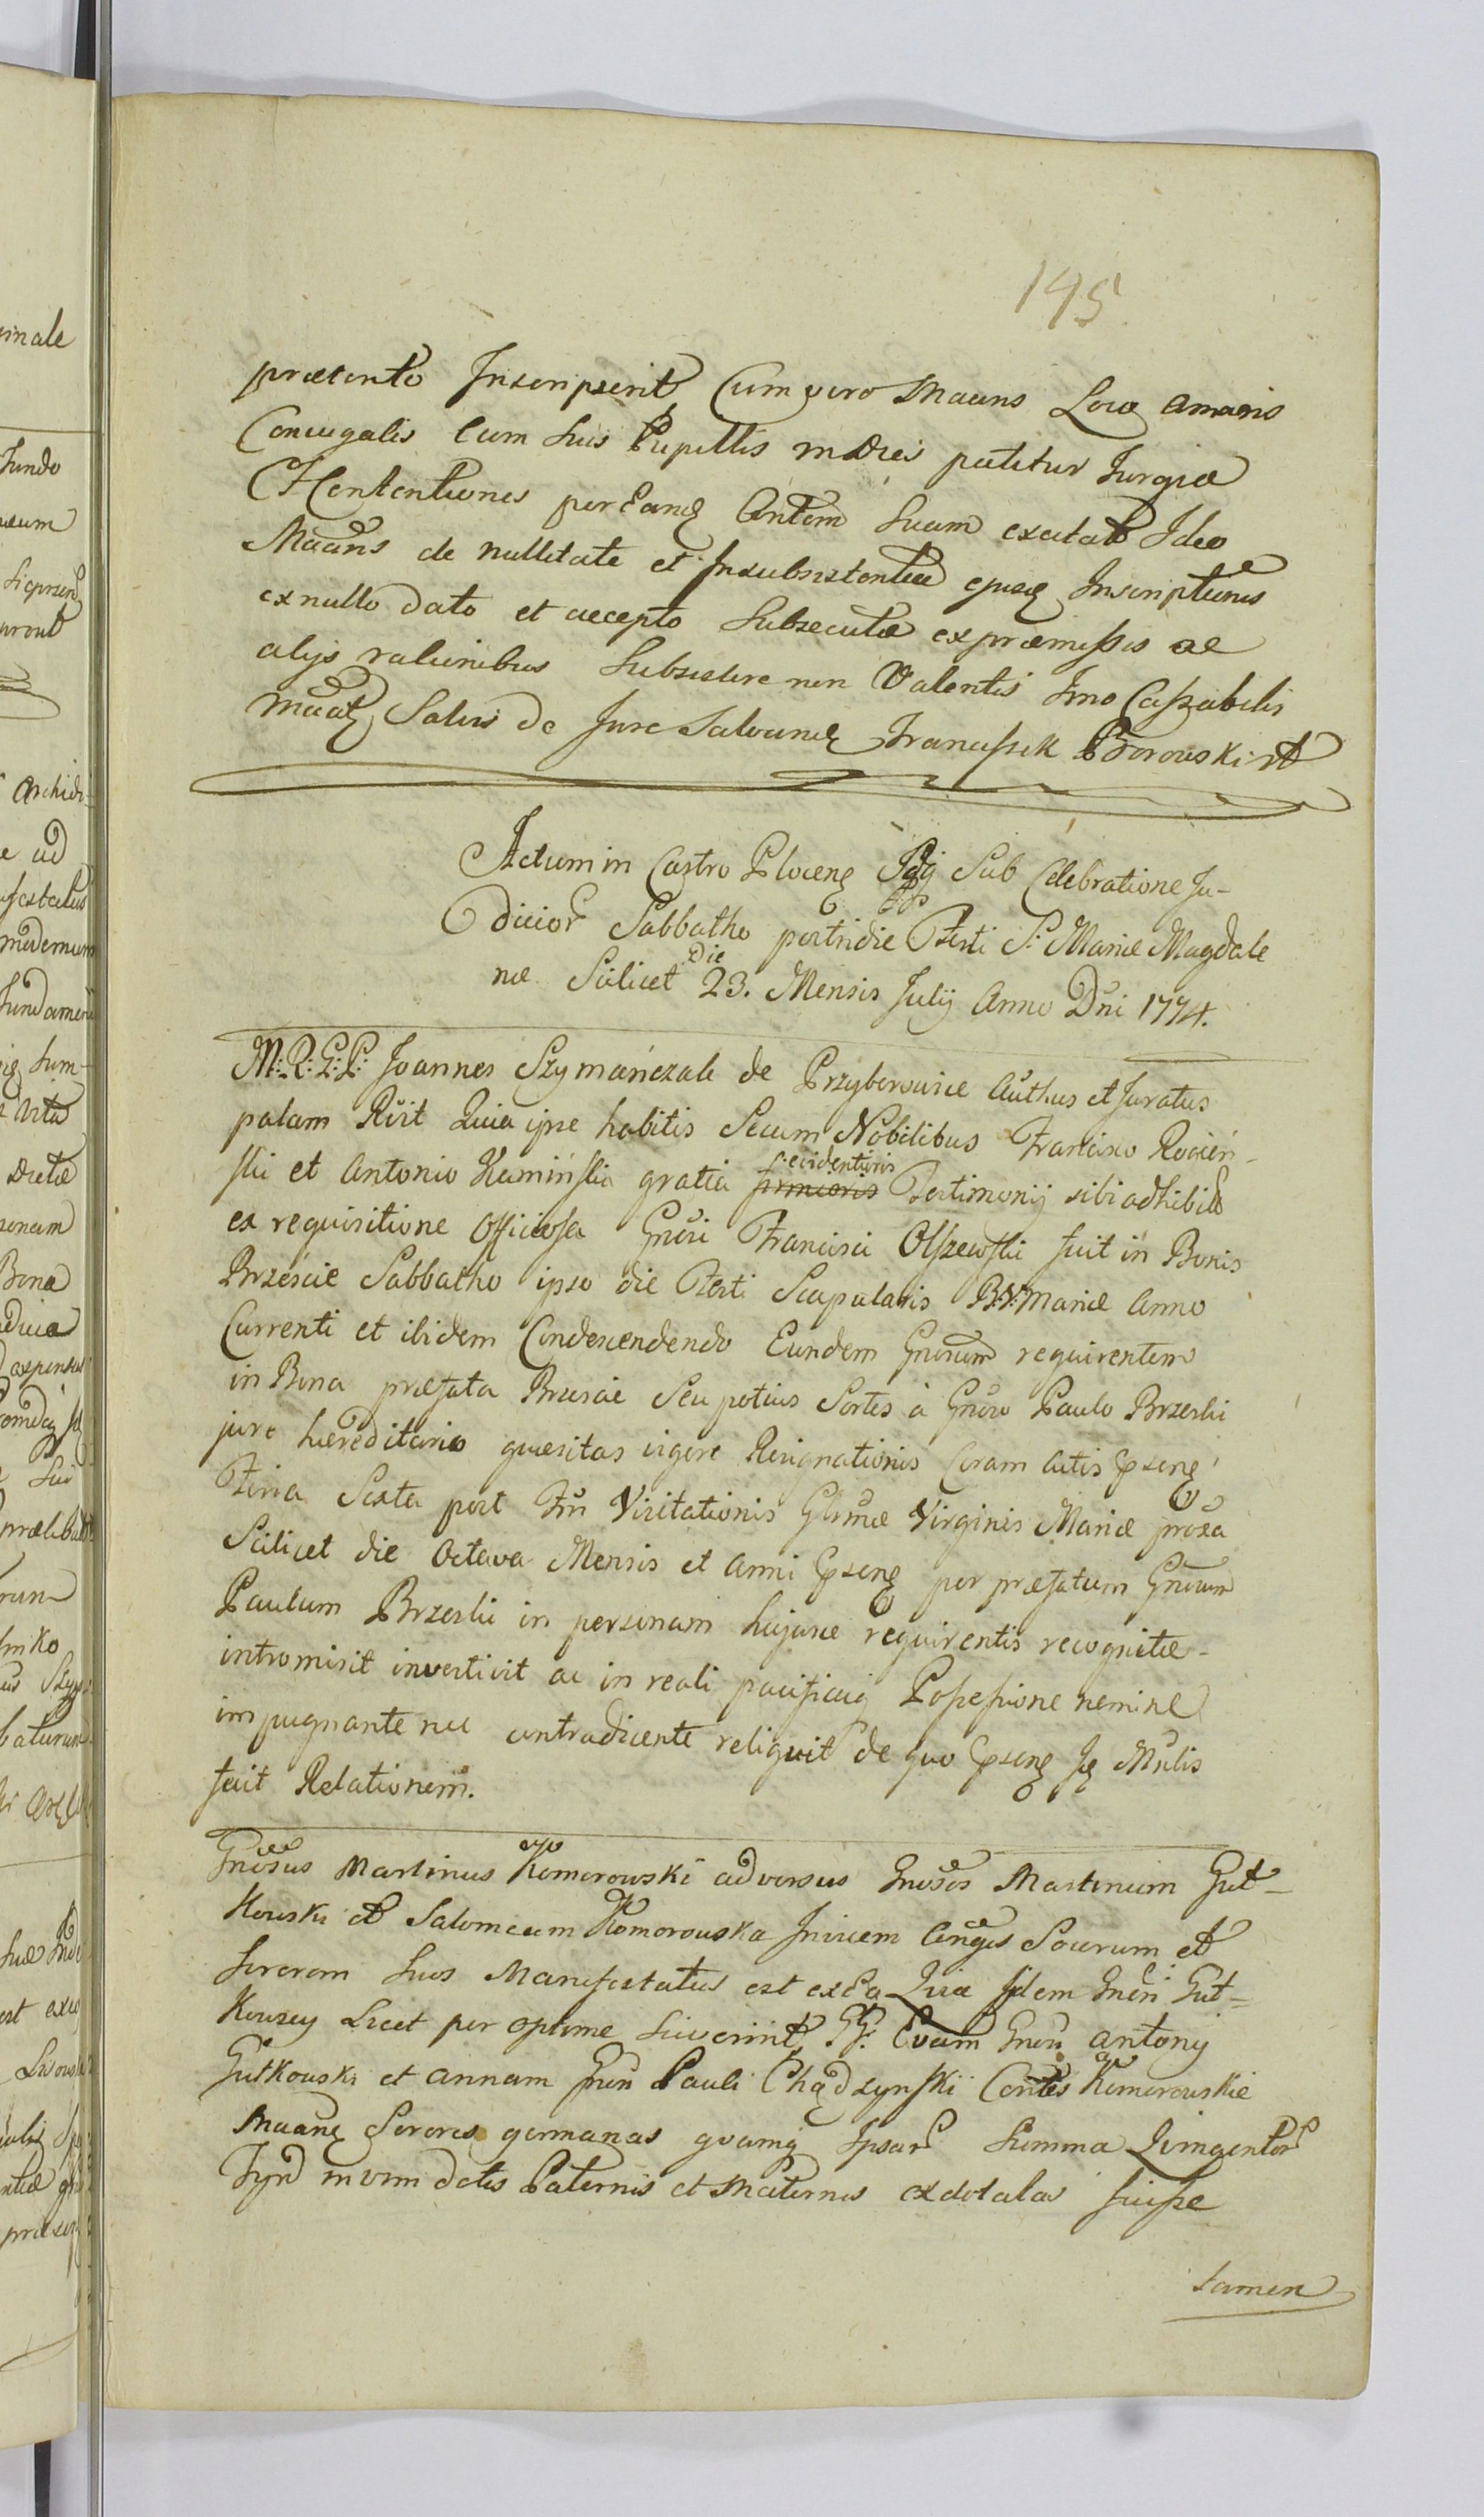 195
prætento Inscripserit, Cum vero Maans Loco amaris
Coniugalis Cum suis Pupillis indies patitur Jurgia
Contentiones per Eandę Contem Suam excitat Ideo
Maans de nullitate et Insubsistentia ejusdę Inscriptionis
ex nullo dato et accepto Subsecutæ ex præmissis ac
alijs rationibus Subsistere non Valentis Imo Cassabilis
maatę Salvis de Jure Salvandę Franciszek Zdorowski
Actum in Castro Plocenę Sub Celebratione Ju-
dicior Sabbatho postridie Festi S: Mariæ Magdale
næ Scilicet Die 23. Mensis Julij Anno Dni 1774.
M: R: G: P: Joannes Szymańczak de Przyborowice Authus et Juratus
palam Rsit Quia ipse habitis Secum Nobilibus Francisco Rocień-
ski et Antonio Kamiński gratia evidentioris Testimonij sibi adhibitis
ex requisitione Officiosa Gnosi Francisci Olszewski fuit in Bonis
Brzeście Sabbatho ipso die Festi Scapularis B.V. Mariæ Anno
Currenti et ibidem Condescendendo Eundem Gnosum requirentem
in Bona præfata Brzescie Seu potius Sortes à Gnoso Paulo Brzeski
jure hæreditario quæsitas vigore Resignationis Coram Actis Psenę
Feria Sexta post Ftu Visitationis Glsmæ Virginis Mariæ proxa
Scilicet die Octava Mensis et Anni Psenę per præfatum Gnosum
Paulum Brzeski in personam hujusce requirentis recognitæ
intromisit investivit ac in reali pacificaq Possessione nemine
impugnante nec contradicente reliquit de quo Psenę Ję Mnlis
fecit Relationem.
Gnosus Martinus Komorowski adversus Gnosos Martinum Gut-
kowski et Salomeam Komorowska Invicem Conges Socrum et
Sororem suos Manifestatus est ex Ea Quia Iidem Gnosi Gut-
kowscy Licet per optime Sciverint, GG. Evam Gnosi Antonij
Gutkowski et Annam Gnosi Pauli Chądzyński Contes Komorowskie
Maanę Sorores germanas quamq Ipsar Summa Quingentor
Flpn mvim dotis Paternis et Maternis exdotatas fuisse
tamen